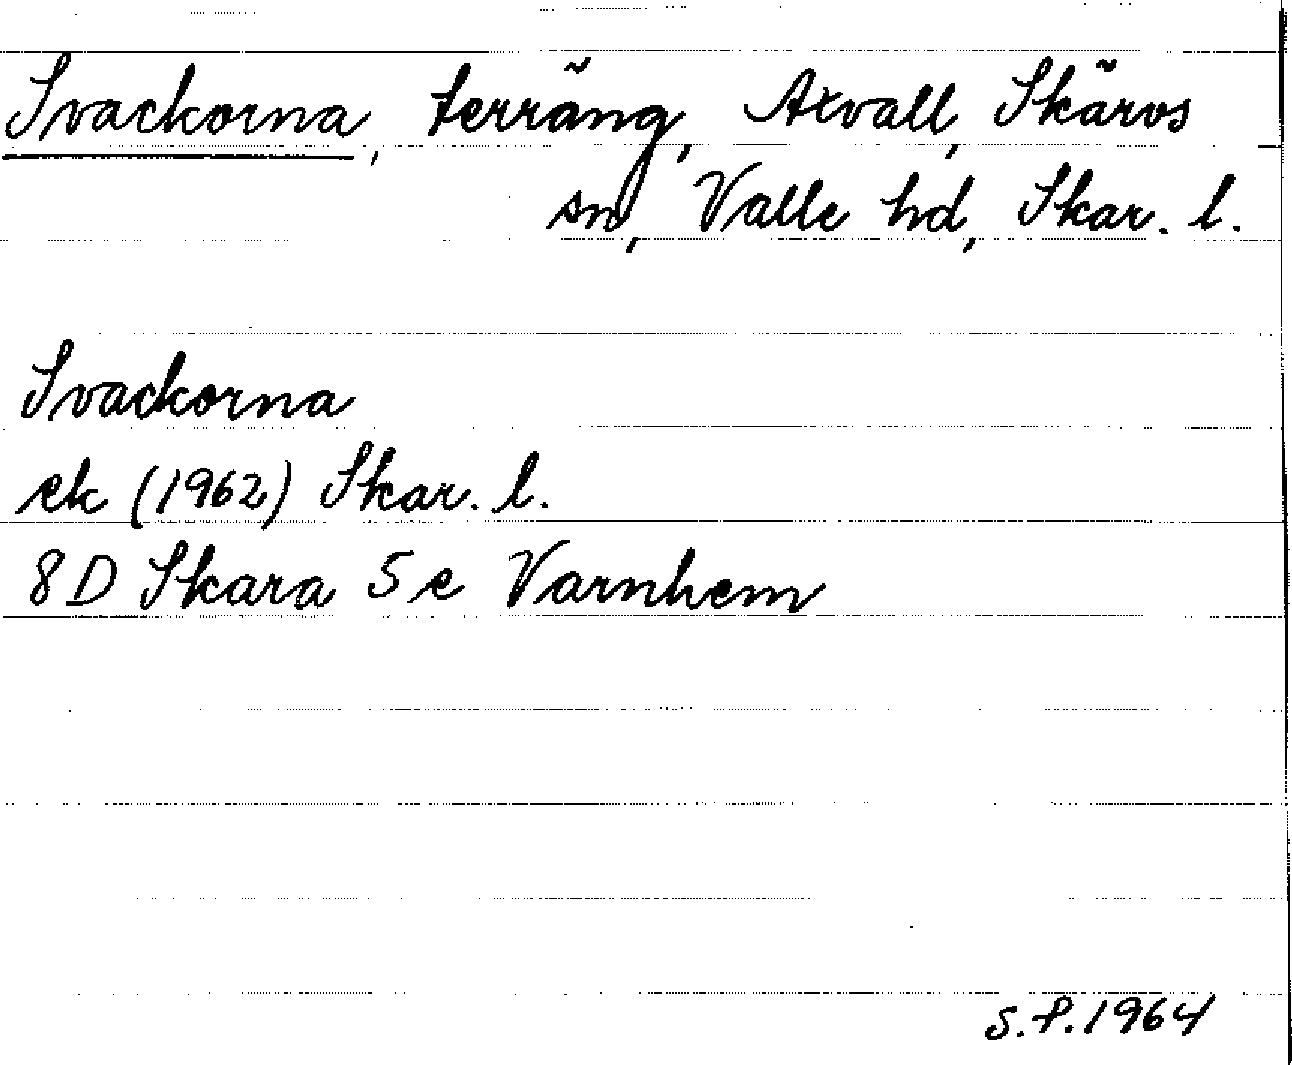 Svackorna, terräng, Axvall, Skärvs
sn, Valle hd, Skar. l.
Svackorna
ek (1962) Skar. l.
8 D Skara 5 e Varnhem
S.P. 1964